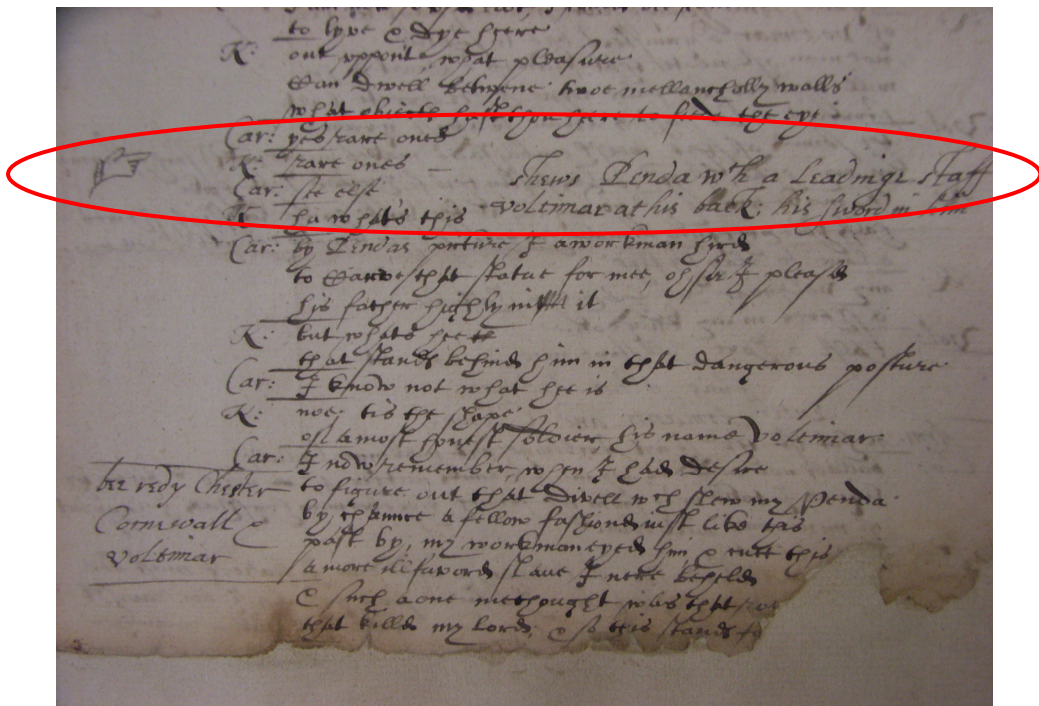 to lyve & dye heere
K: out uppon't, what pleasure
Can dwell betweene twoe mellancholly walls
what obiects hast thou heere to feede the eye
Car: yes rare ones
K: rare ones
shews Penda wth a Leadinge staff
Car: see else
voltimar at his back; his sword in him
K: ha whats this
Car: by Pendas picture I a workman hird
to Carve that statue for mee, oh sir I pleasd
his father highly in it
K: but whats hee
that stands behind him in that dangerous posture
Car: I know not what hee is
K: noe; tis the shape
of a most honest soldier, his name Voltimar
Car: I now remember, when I had desire
to figure out that divell wch slew my Penda
by chaunce a fellow fashiond iust like this
past by, my workman eyed him & cutt this
a more illfavord slave I nere beheld
& such a one methought was that
that killd my lord, & so this stands
bee redy Chester
Cornwall &
Voltimar